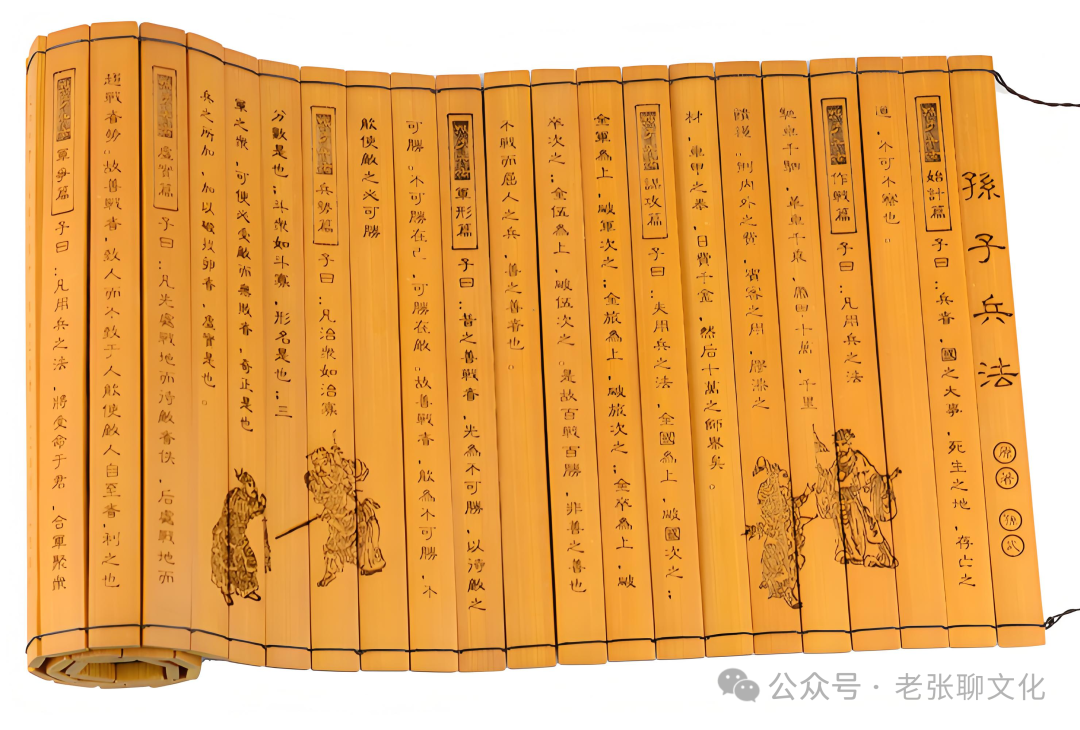 孫子兵法
孫武
始計篇 子曰:兵者,國之大事,死生之地,存亡之
道,不可不察也。
作戰篇 子曰:凡用兵之法
馳車千駟,革車千乘,帶甲十萬,千里
饋糧,則內外之費,賓客之用,膠漆之
材,車甲之奉,日費千金,然后十萬之師舉矣。
謀攻篇 子曰:夫用兵之法,全國為上,破國次之;
全軍為上,破軍次之;全旅為上,破旅次之;全卒為上,破
卒次之;全伍為上,破伍次之。是故百戰百勝,非善之善也
不戰而屈人之兵,善之善者也。
軍形篇 子曰:昔之善戰者,先為不可勝,以待敵之
可勝。不可勝在己,可勝在敵。故善戰者,能為不可勝,不
能使敵之必可勝
兵勢篇 子曰:凡治衆如治寡
分數是也;斗衆如斗寡,形名是也;三
軍之衆,可使必受敵而無敗者,奇正是也
兵之所加,如以碫投卵者,虛實是也。
虛實篇 子曰:凡先處戰地而待敵者佚,后處戰地而
趨戰者勞。故善戰者,致人而不致于人能使敵人自至者,利之也
軍爭篇 子曰:凡用兵之法,將受命于君,合軍聚衆
公众号·老张聊文化